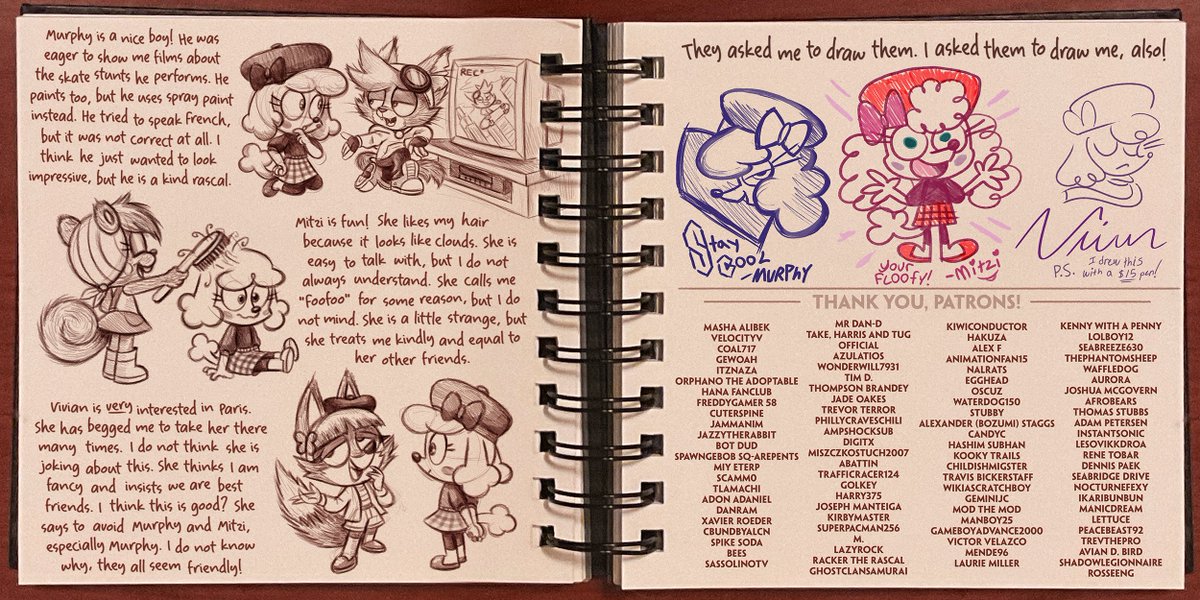 Murphy is a nice boy! He was
eager to show me films about
the skate stunts he performs. He
paints too, but he uses spray paint
instead. He tried to speak French,
but it was not correct at all. I
think he just wanted to look
impressive, but he is a kind rascal.
REC
Mitzi is fun! She likes my hair
because it looks like clouds. She is
easy to talk with, but I do not
always understand. She calls me
"foofoo" for some reason, but I do
not mind. She is a little strange, but
she treats me kindly and equal to
her other friends.
Vivian is very interested in Paris.
She has begged me to take her there
many times. I do not think she is
joking about this. She thinks I am
fancy and insists we are best
friends. I think this is good? She
says to avoid Murphy and Mitzi,
especially Murphy. I do not know
why, they all seem friendly!
They asked me to draw them. I asked them to draw me, also!
Stay
Cool
-MURPHY
your
FLOOFY!
-Mitzi
P.S. I drew this
with a $15 pen!
THANK YOU, PATRONS!
MASHA ALIBEK
VELOCITYV
COAL717
GEWOAH
ITZNAZA
ORPHANO THE ADOPTABLE
HANA FANCLUB
FREDDYGAMER 58
CUTERSPINE
JAMMANIM
JAZZYTHERABBIT
BOT DUD
SPAWNGEBOB SQ-AREPENTS
MIY ETERP
SCAMM0
TLAMACHI
ADON ADANIEL
DANRAM
XAVIER ROEDER
CBUNDBYALCN
SPIKE SODA
BEES
SASSOLINOTV
MR DAN-D
TAKE, HARRIS AND TUG
OFFICIAL
AZULATIOS
WONDERWILL7931
TIM D.
THOMPSON BRANDEY
JADE OAKES
TREVOR TERROR
PHILLYCRAVESCHILI
AMPSHOCKSUB
DIGITX
MISZCZKOSTUCH2007
ABATTIN
TRAFFICRACER124
GOLKEY
HARRY375
JOSEPH MANTEIGA
KIRBYMASTER
SUPERPACMAN256
M.
LAZYROCK
RACKER THE RASCAL
GHOSTCLANSAMURAI
KIWICONDUCTOR
HAKUZA
ALEX F
ANIMATIONFAN15
NALRATS
EGGHEAD
OSCUZ
WATERDOG150
STUBBY
ALEXANDER (BOZUMI) STAGGS
CANDYC
HASHIM SUBHAN
KOOKY TRAILS
CHILDISHMIGSTER
TRAVIS BICKERSTAFF
WIKIASCRATCHBOY
GEMINIJC
MOD THE MOD
MANBOY25
GAMEBOYADVANCE2000
VICTOR VELAZCO
MENDE96
LAURIE MILLER
KENNY WITH A PENNY
LOLBOY12
SEABREEZE630
THEPHANTOMSHEEP
WAFFLEDOG
AURORA
JOSHUA MCGOVERN
AFROBEARS
THOMAS STUBBS
ADAM PETERSEN
INSTANTSONIC
LESOVIKDROA
RENE TOBAR
DENNIS PAEK
SEABRIDGE DRIVE
NOCTURNEFEXY
IKARIBUNBUN
MANICDREAM
LETTUCE
PEACEBEAST92
TREVTHEPRO
AVIAN D. BIRD
SHADOWLEGIONNAIRE
ROSSEENG